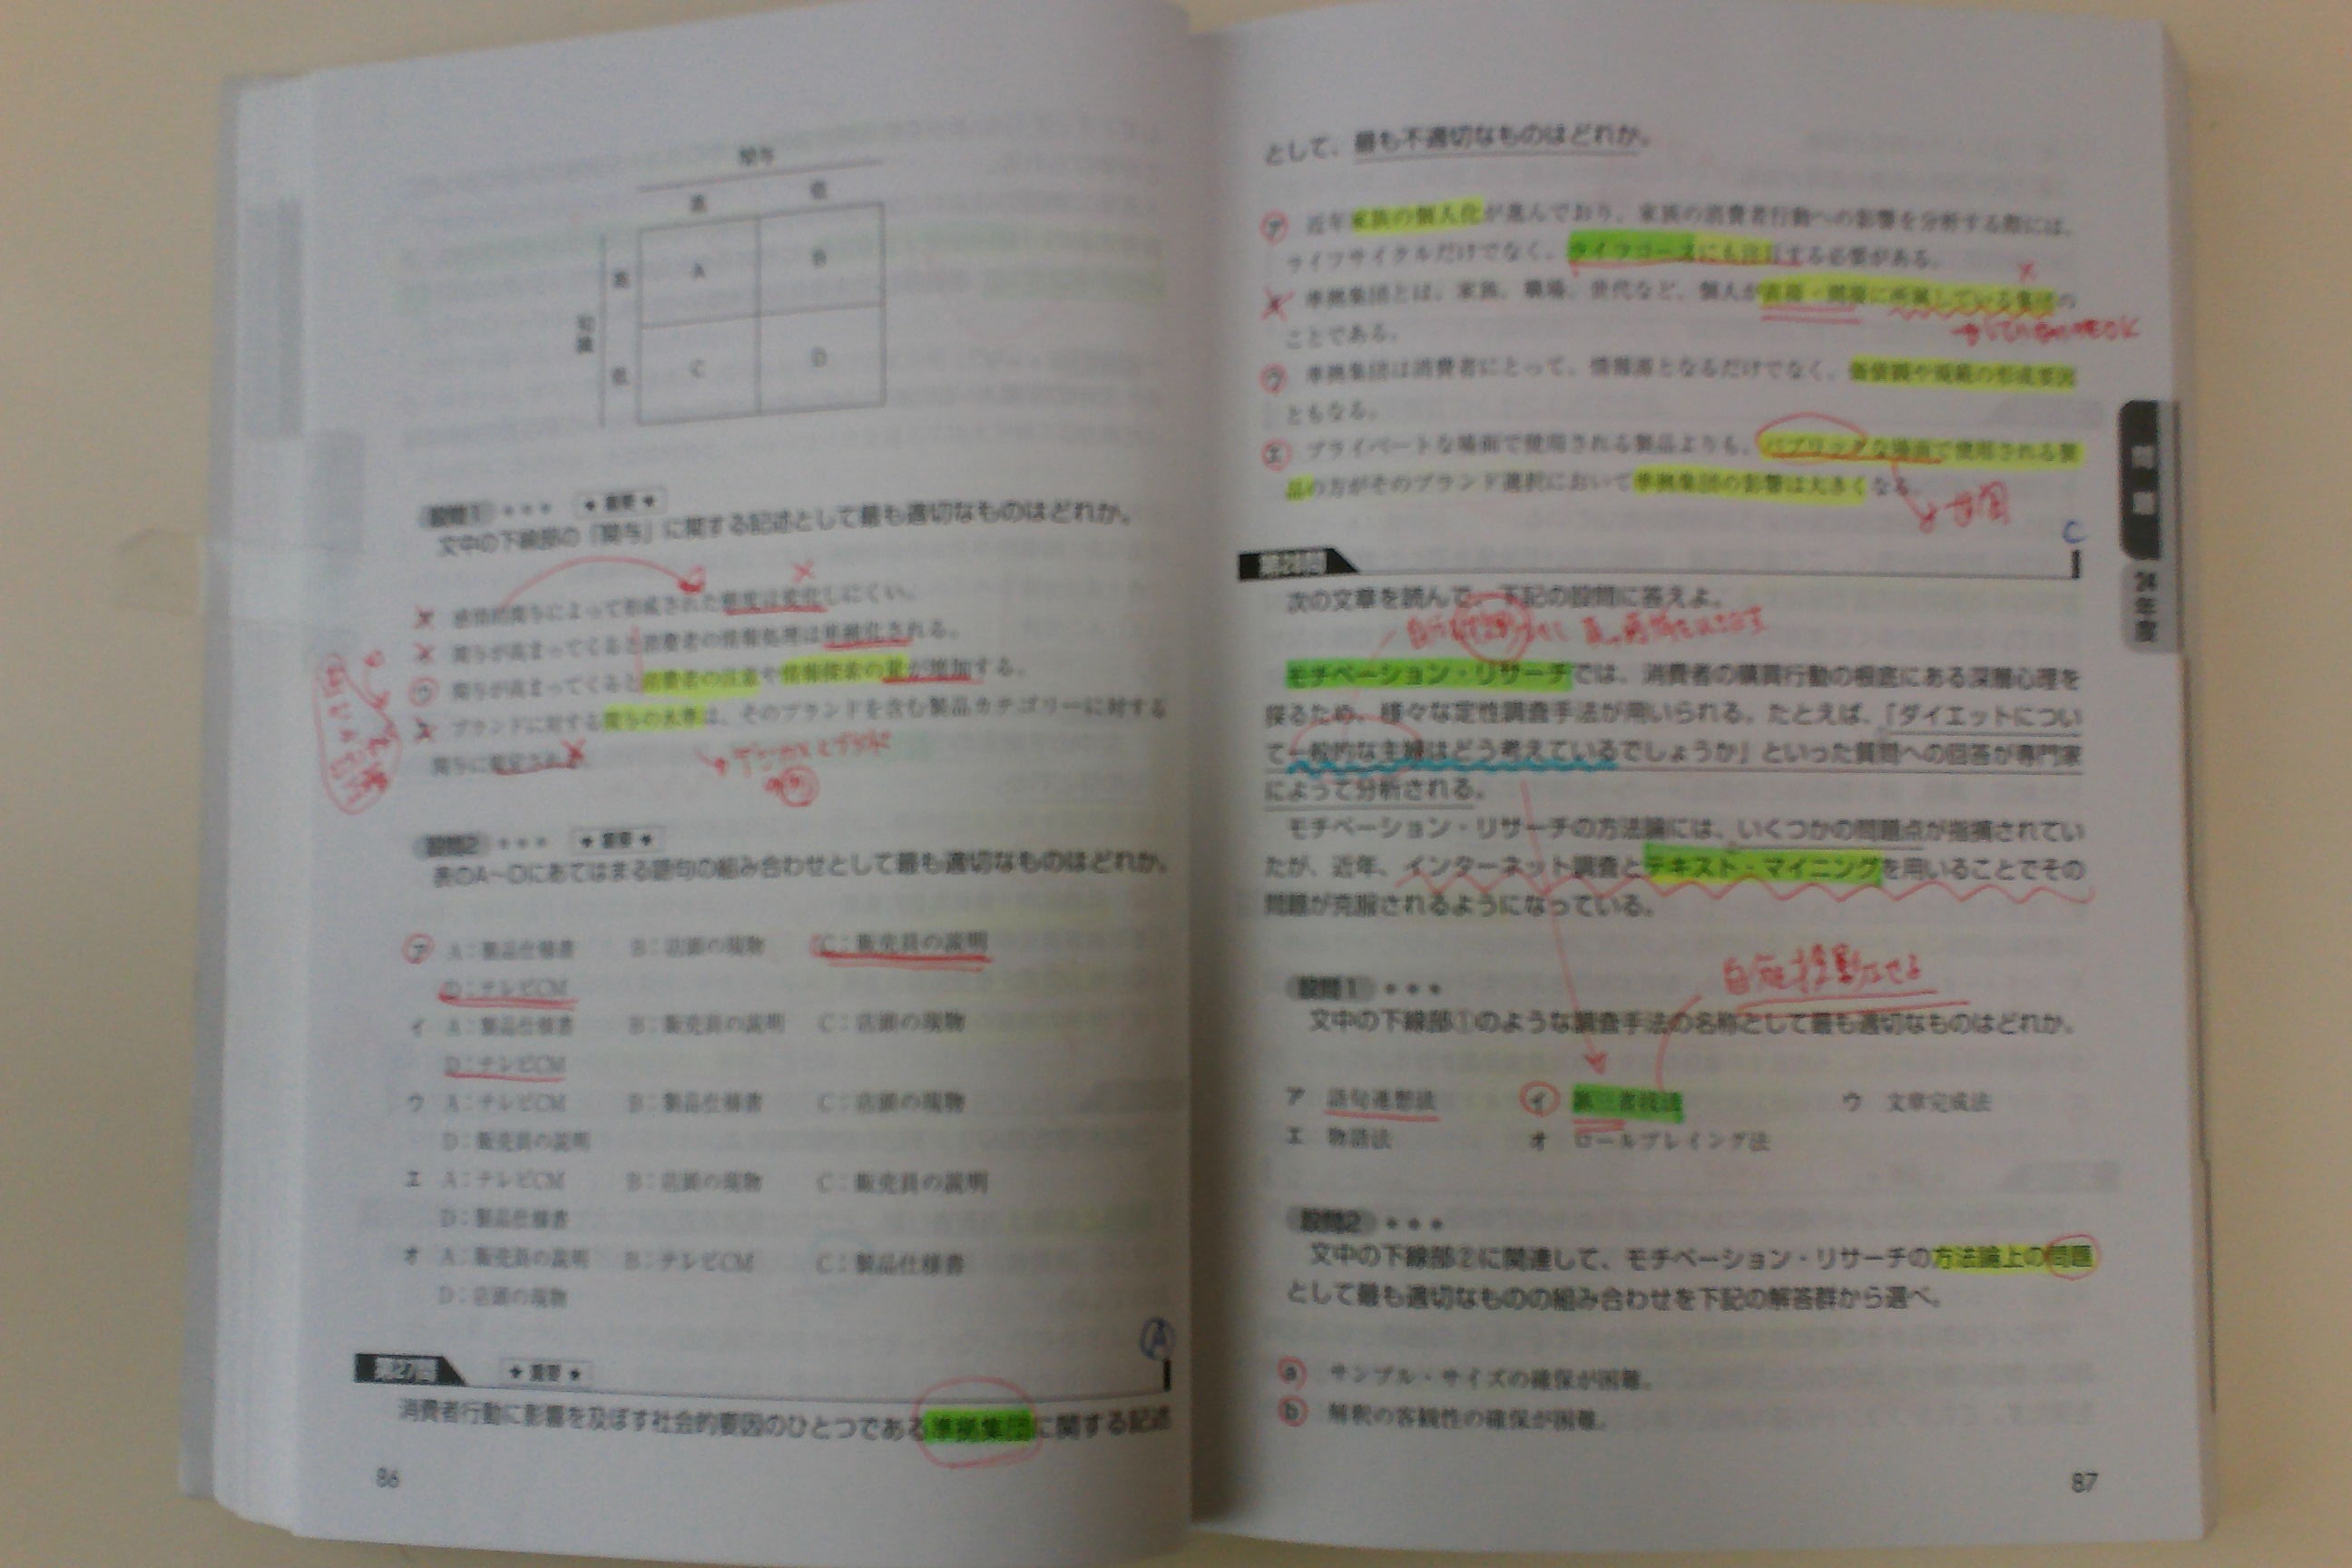 関与
高 低
知識
高 A B
低 C D
設問1 ＊＊＊ ★重要★
文中の下線部の「関与」に関する記述として最も適切なものはどれか。
感情的関与によって形成された態度は変化しにくい。
関与が高まってくると消費者の情報処理は単純化される。
ウ 関与が高まってくると消費者の注意や情報探索の量が増加する。
ブランドに対する関与の水準は、そのブランドを含む製品カテゴリーに対する
関与に規定される。
設問2 ＊＊＊ ★重要★
表のA～Dにあてはまる語句の組み合わせとして最も適切なものはどれか。
ア A：製品仕様書 B：店頭の現物 C：販売員の説明
D：テレビCM
イ A：製品仕様書 B：販売員の説明 C：店頭の現物
D：テレビCM
ウ A：テレビCM B：製品仕様書 C：店頭の現物
D：販売員の説明
エ A：テレビCM B：店頭の現物 C：販売員の説明
D：製品仕様書
オ A：販売員の説明 B：テレビCM C：製品仕様書
D：店頭の現物
A
第27問 ★重要★
消費者行動に影響を及ぼす社会的要因のひとつである準拠集団に関する記述
86
として、最も不適切なものはどれか。
ア 近年家族の個人化が進んでおり、家族の消費者行動への影響を分析する際には、
ライフサイクルだけでなく、ライフコースにも注目する必要がある。
準拠集団とは、家族、職場、世代など、個人が直接・間接に所属している集団の
ことである。
ウ 準拠集団は消費者にとって、情報源となるだけでなく、価値観や規範の形成要因
ともなる。
エ プライベートな場面で使用される製品よりも、パブリックな場面で使用される製
品の方がそのブランド選択において準拠集団の影響は大きくなる。
C
第28問
次の文章を読んで、下記の設問に答えよ。
モチベーション・リサーチでは、消費者の購買行動の根底にある深層心理を
探るため、様々な定性調査手法が用いられる。たとえば、「ダイエットについ
て一般的な主婦はどう考えているでしょうか」といった質問への回答が専門家
によって分析される。
モチベーション・リサーチの方法論には、いくつかの問題点が指摘されてい
たが、近年、インターネット調査とテキスト・マイニングを用いることでその
問題が克服されるようになっている。
設問1 ＊＊＊
文中の下線部①のような調査手法の名称として最も適切なものはどれか。
ア 語句連想法 イ 第三者技法 ウ 文章完成法
エ 物語法 オ ロールプレイング法
設問2 ＊＊＊
文中の下線部②に関連して、モチベーション・リサーチの方法論上の問題
として最も適切なものの組み合わせを下記の解答群から選べ。
a サンプル・サイズの確保が困難。
b 解釈の客観性の確保が困難。
87
問題
24年度